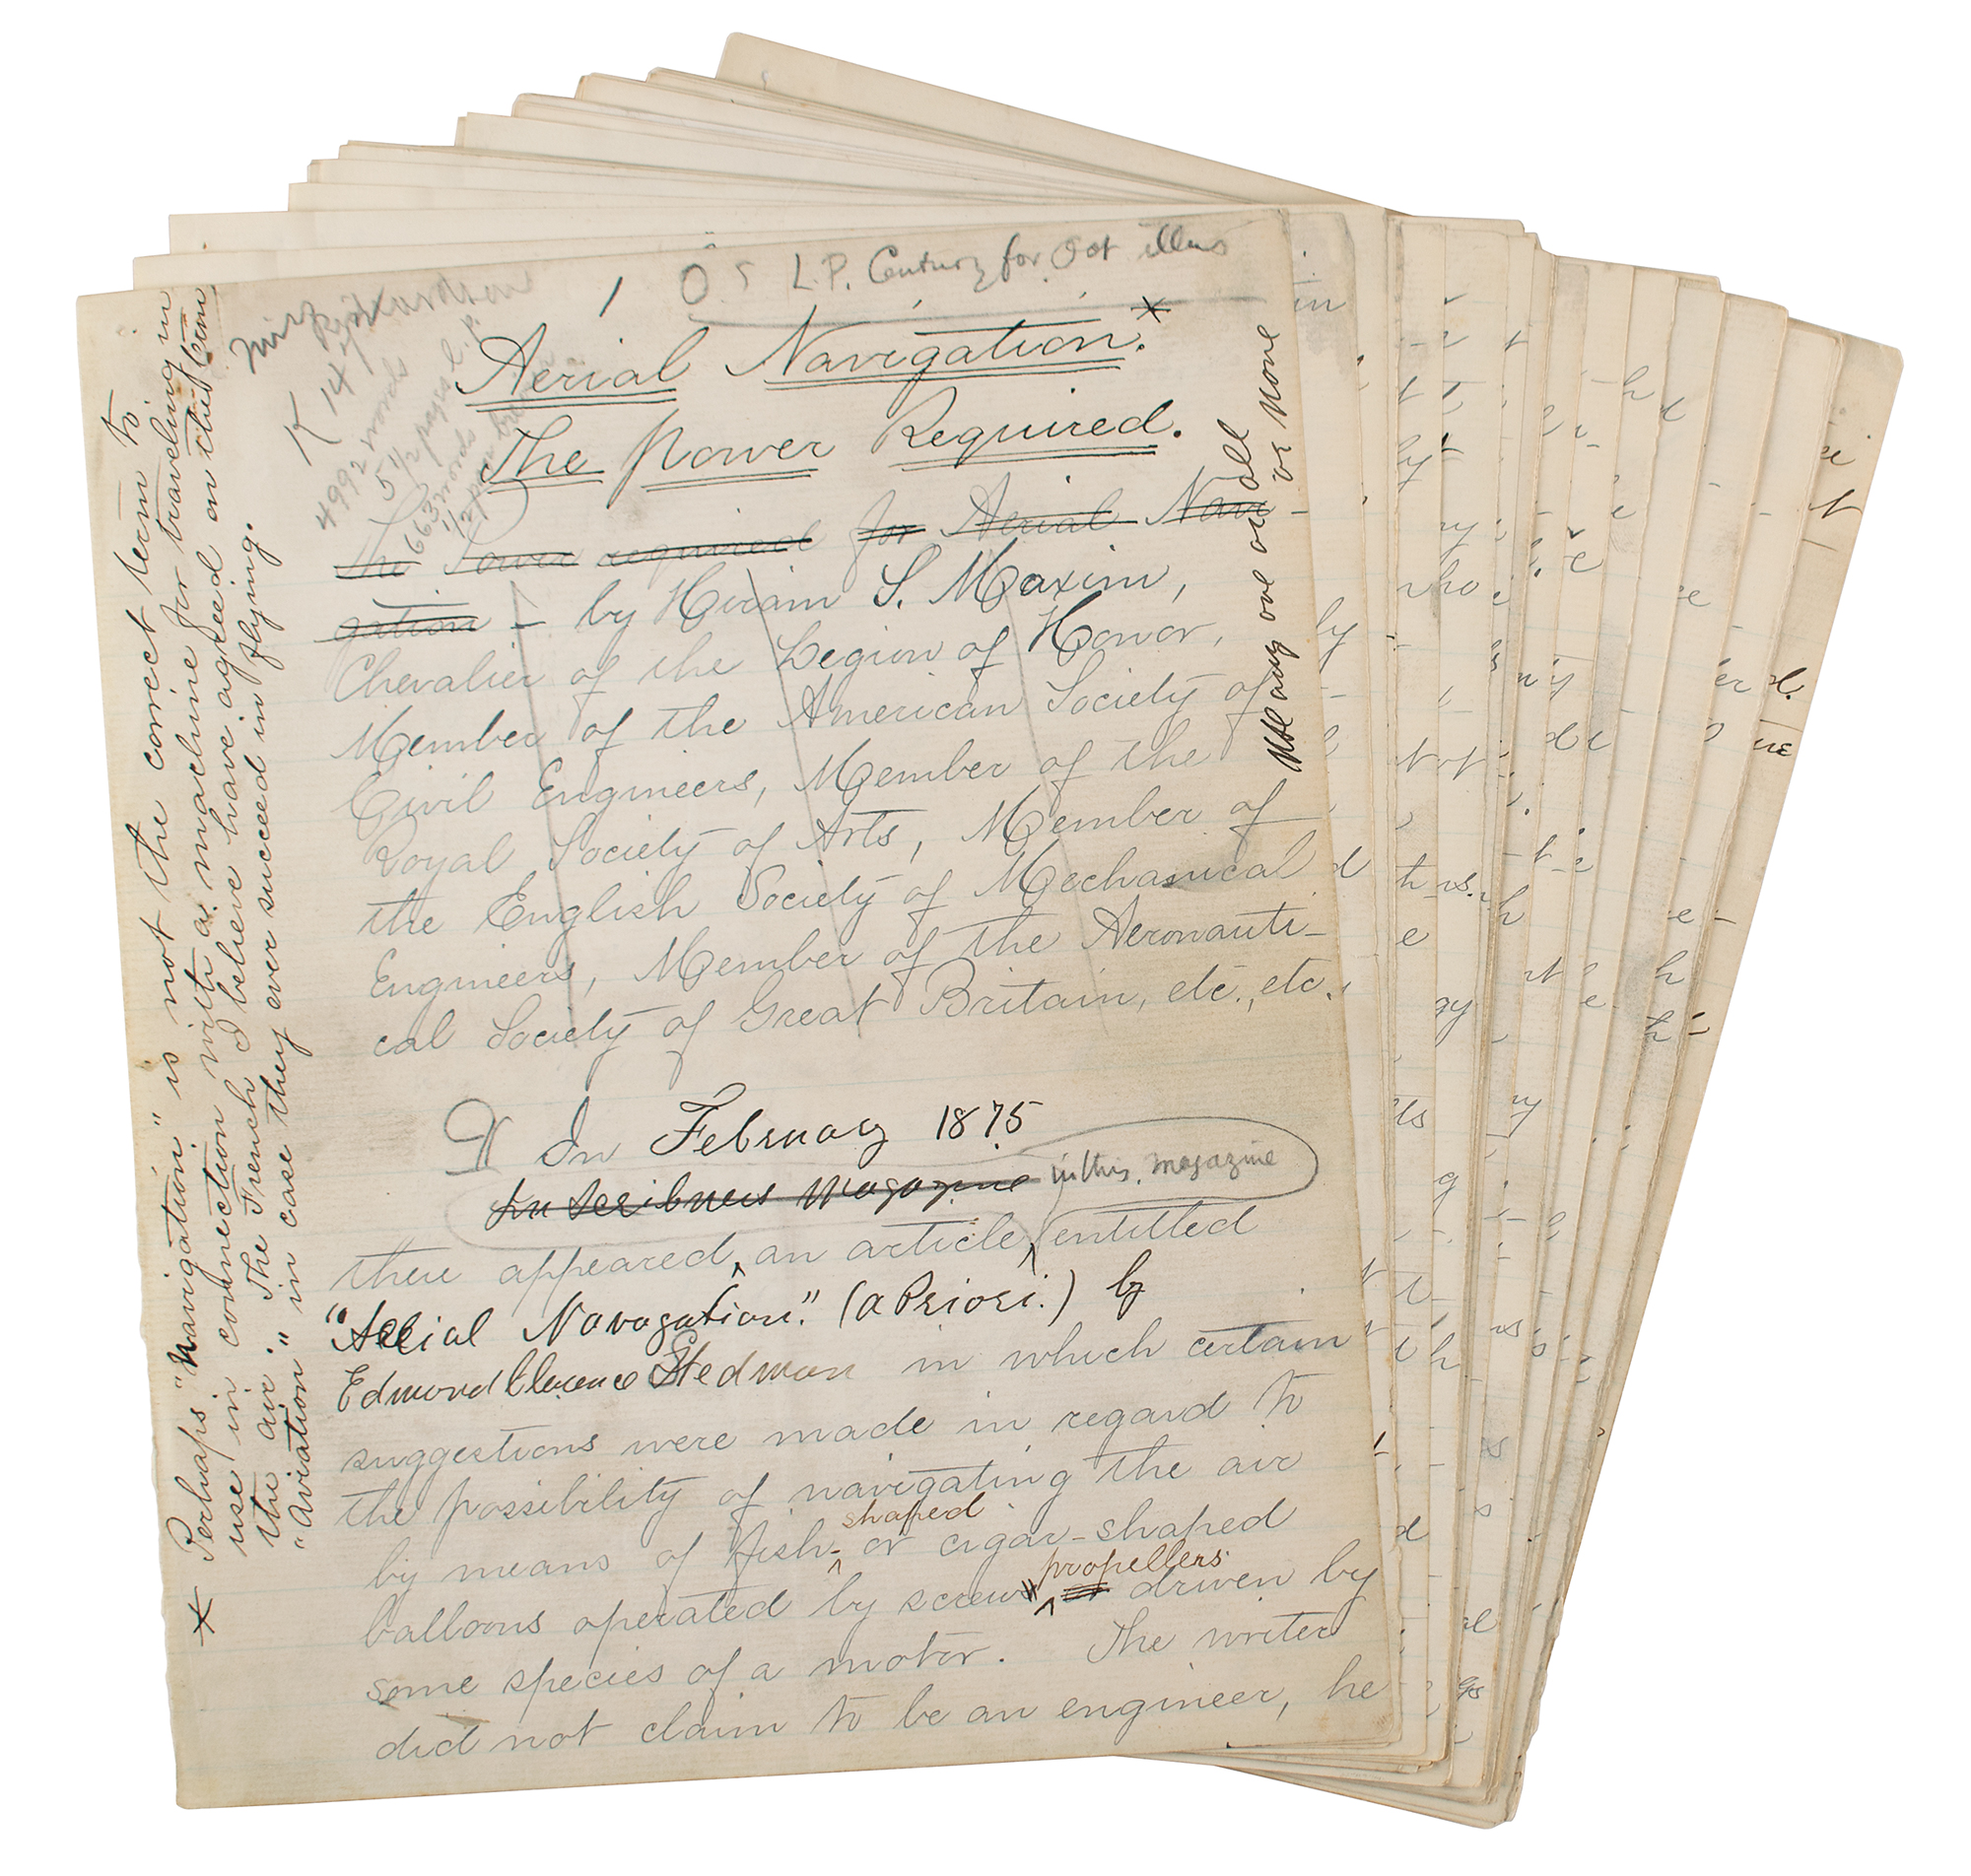 1
O.S L.P. Century for Oct illus
Miss Richardson
K 14
4992 words
5 1/2 pages L.P.
663 words
Aerial Navigation.*
The Power Required.
The Power required for Aerial Navi-
gation — by Hiram S. Maxim,
Chevalier of the Legion of Honor,
Member of the American Society of
Civil Engineers, Member of the
Royal Society of Arts, Member of
the English Society of Mechanical
Engineers, Member of the Aeronauti-
cal Society of Great Britain, etc., etc.
Use any one or all
or none
In February 1875
In Scribners Magazine in this magazine
there appeared an article entitled
"Aerial Navagation." (a Priori.) by
Edmond Clarence Stedman in which certain
suggestions were made in regard to
the possibility of navigating the air
shaped
by means of fish- or cigar-shaped
propellers
balloons operated by screw driven by
some species of a motor. The writer
did not claim to be an engineer, he
* Perhaps "Navigation" is not the correct term to
use in connection with a machine for traveling in
the air. The French I believe have agreed on the term
"Aviation" in case they ever succeed in flying.